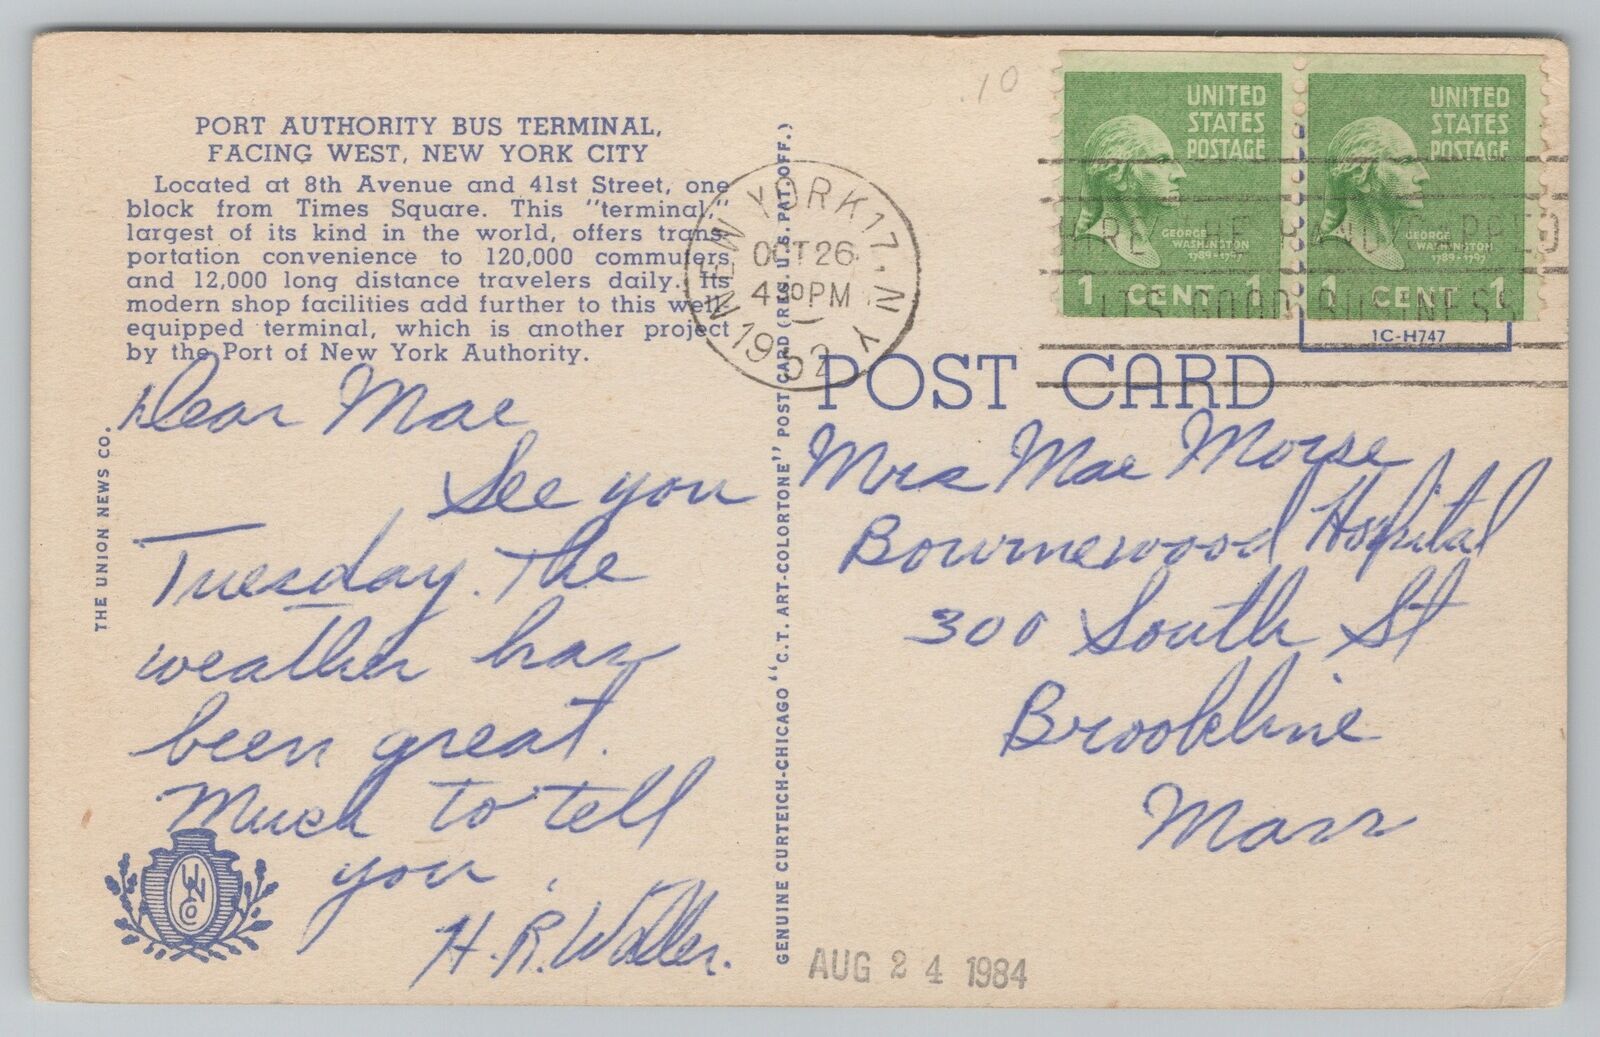 PORT AUTHORITY BUS TERMINAL,
FACING WEST, NEW YORK CITY
Located at 8th Avenue and 41st Street, one
block from Times Square. This "terminal,"
largest of its kind in the world, offers trans-
portation convenience to 120,000 commuters
and 12,000 long distance travelers daily. Its
modern shop facilities add further to this well-
equipped terminal, which is another project
by the Port of New York Authority.
THE UNION NEWS CO.
Dear Mae
See you
Tuesday. The
weather has
been great.
Much to tell
you.
H. R. Waller.
UNCO
GENUINE CURTEICH-CHICAGO "C.T. ART-COLORTONE" POST CARD (REG. U.S. PAT. OFF.)
.10
NEW YORK 17 N Y
OCT 26
4 PM
1952
UNITED
STATES
POSTAGE
GEORGE
WASHINGTON
1789-1797
1 CENT 1
UNITED
STATES
POSTAGE
GEORGE
WASHINGTON
1789-1797
1 CENT 1
HIRE THE HANDICAPPED
IT'S GOOD BUSINESS
1C-H747
POST CARD
Mrs Mae Morse
Bournewood Hospital
300 South St
Brookline
Mass
AUG 24 1984